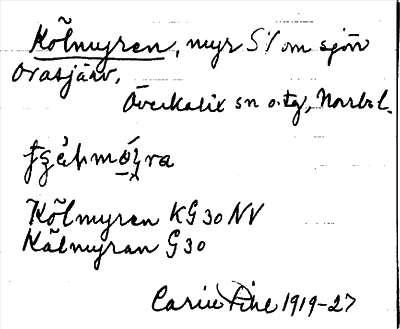 Kölmyren, myr S/ om sjön
Orasjärv,
Överkalix sn o. tg, Norrb. l.
Kölmyren KG30 NV
Kälmyran G30
Carin Pihl 1919-27